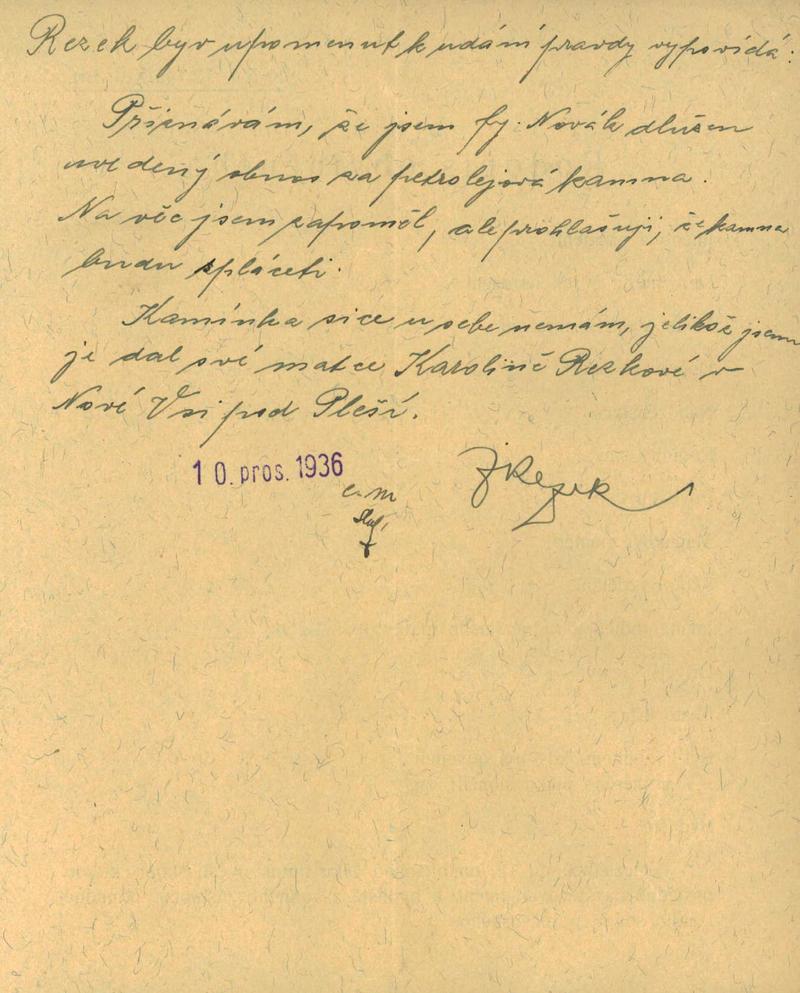 Rezek byv upomenut k udání pravdy vypovídá:
Přiznávám, že jsem fy. Novák dlužen
uvedený obnos za petrolejová kamna.
Na věc jsem zapoměl, ale prohlašuji, že kamna
budu spláceti.
Kamínka sice u sebe nemám, jelikož jsem
je dal své matce Karolině Rezkové v
Nové Vsi pod Pleší.
10. pros. 1936
J Rezek